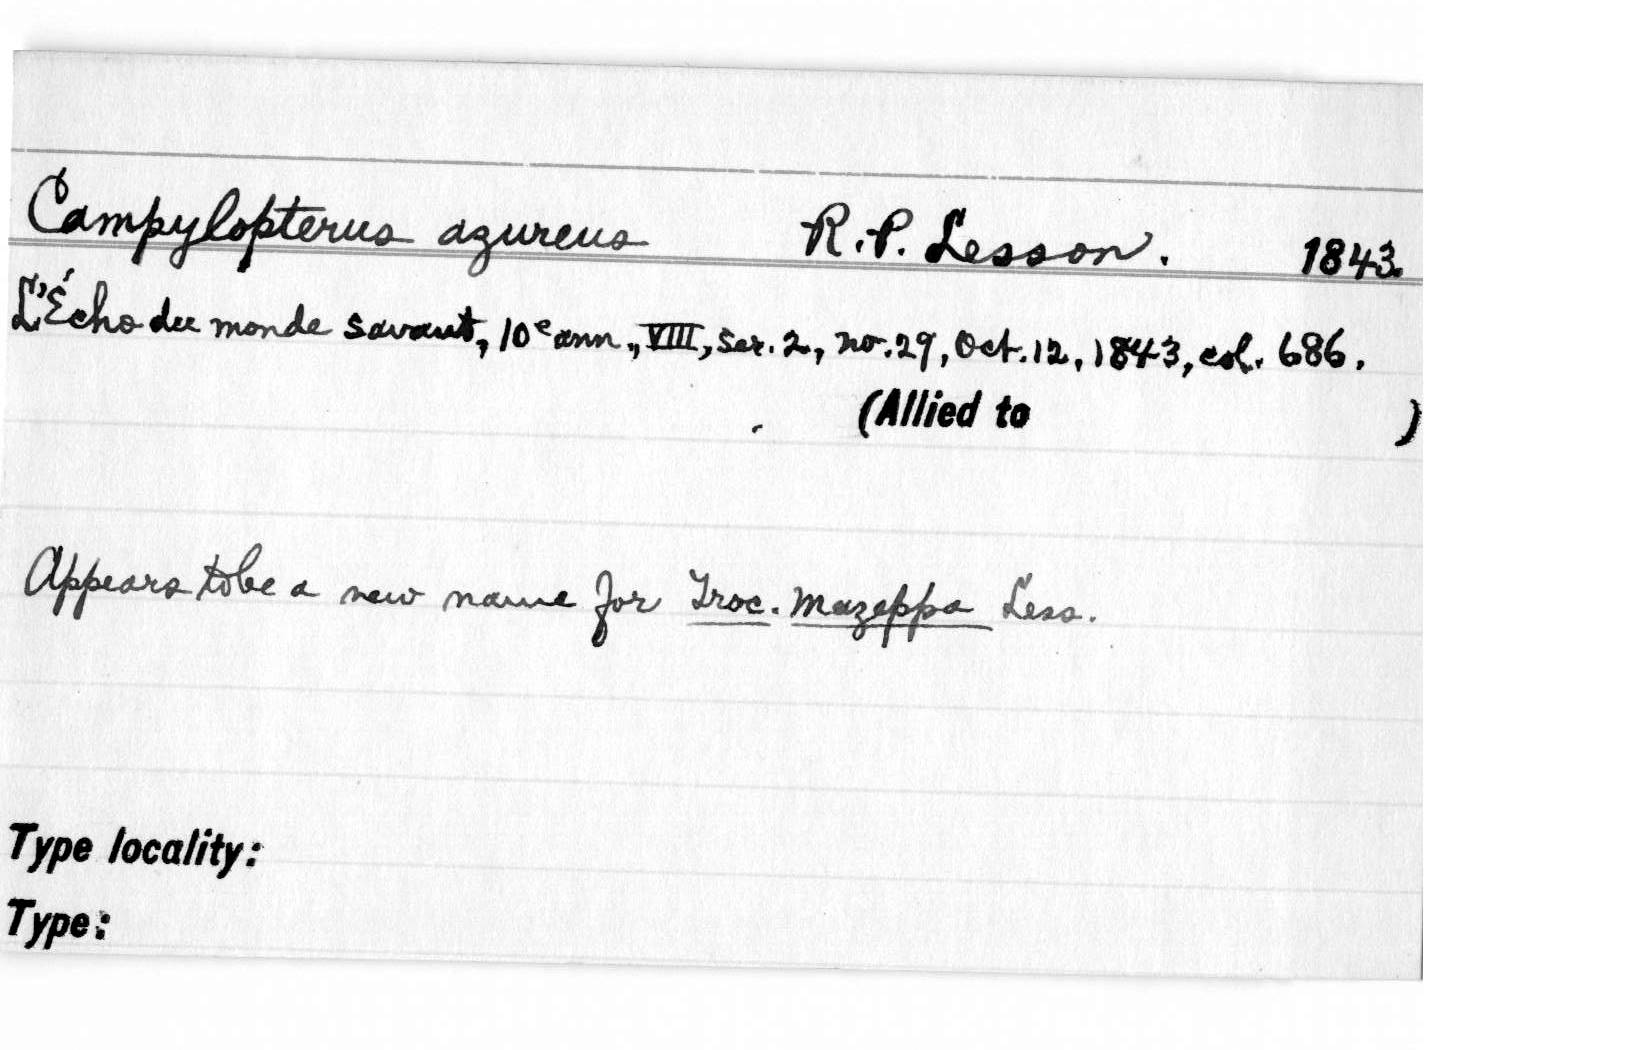 Campylopterus azureus R. P. Lesson. 1843.
L'Écho du monde savant, 10e ann., VIII, ser. 2, no. 29, Oct. 12, 1843, col. 686.
(Allied to )
Appears to be a new name for Troc. Mazeppa Less.
Type locality:
Type: